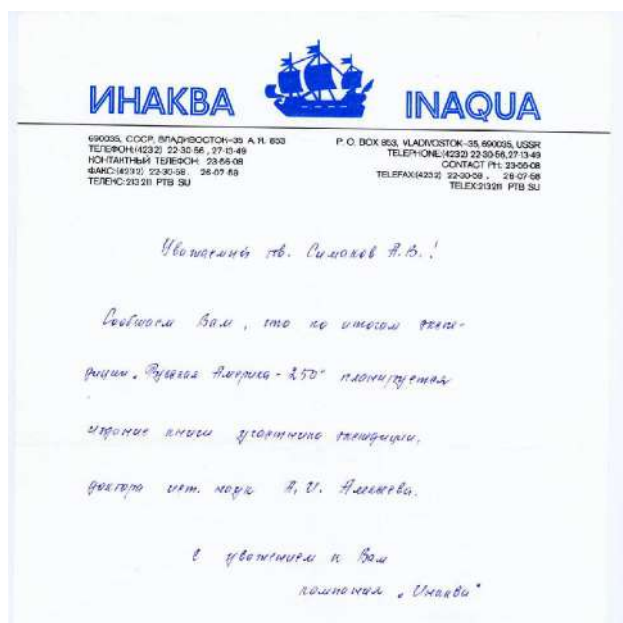 ИНАКВА
INAQUA
690035, СССР, ВЛАДИВОСТОК-35 А.Я. 853
ТЕЛЕФОН:(4232) 22-30-56, 27-13-49
КОНТАКТНЫЙ ТЕЛЕФОН: 23-56-08
ФАКС:(4232) 22-30-58, 26-07-58
ТЕЛЕКС:213211 PTB SU
P. O. BOX 853, VLADIVOSTOK-35, 690035, USSR
TELEPHONE:(4232) 22-30-56, 27-13-49
CONTACT PH: 23-56-08
TELEFAX:(4232) 22-30-58, 26-07-58
TELEX:213211 PTB SU
Уважаемый тв. Симаков А.В.!
Сообщаем Вам, что по итогам экспе-
диции „Русская Америка - 250" планируется
издание книги участника экспедиции,
доктора ист. наук А. И. Алексеева.
С уважением к Вам
компания „Инаква"